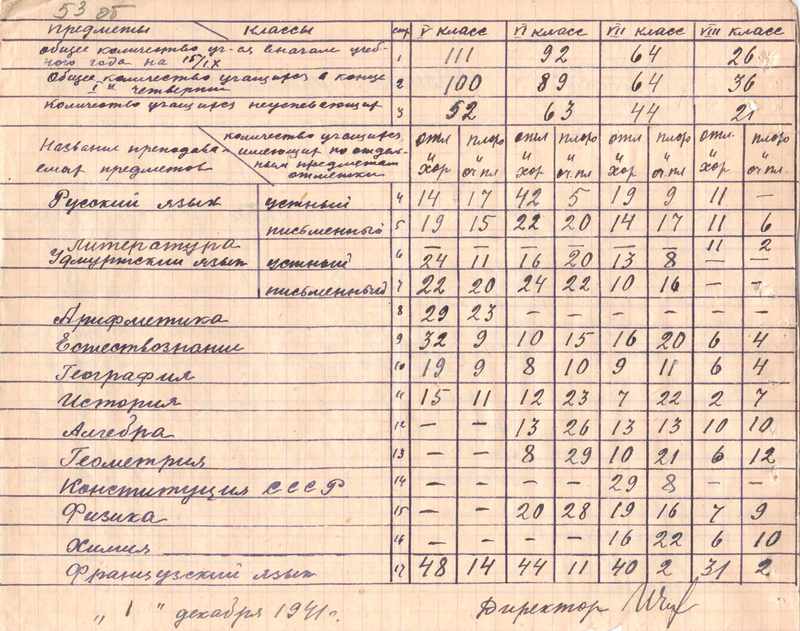 53 об
Предметы Классы стр V класс VI класс VII класс VIII класс
Общее количество уч-ся вначале учеб-
ного года на 15/IX 1 111 92 64 26
Общее количество учащихся в конце
I " четверти 2 100 89 64 36
Количество учащихся неуспевающих 3 52 63 44 21
Названия преподава-
емых предметов
количество учащихся
имеющих по отдель-
ным предметам
отметки
отл плохо отл плохо отл плохо отл. плохо
и и и и и и и и
хор оч.пл хор оч.пл хор оч.пл хор оч пл.
Русский язык устный 4 14 17 42 5 19 9 11 —
письменный 5 19 15 22 20 14 17 11 6
Литература — — — — — — 11 2
Удмуртский язык устный 6 24 11 16 20 13 8 — —
письменный 7 22 20 24 22 10 16 — —
Арифметика 8 29 23 — — — — — —
Естествознание 9 32 9 10 15 16 20 6 4
География 10 19 9 8 10 9 11 6 4
История 11 15 11 12 23 7 22 2 7
Алгебра 12 — — 13 26 13 13 10 10
Геометрия 13 — — 8 29 10 21 6 12
Конституция СССР 14 — — — — 29 8 — —
Физика 15 — — 20 28 19 16 7 9
Химия 16 — — — — 16 22 6 10
Французский язык 17 48 14 44 11 40 2 31 2
„ 1 " декабря 1941 г. Директор